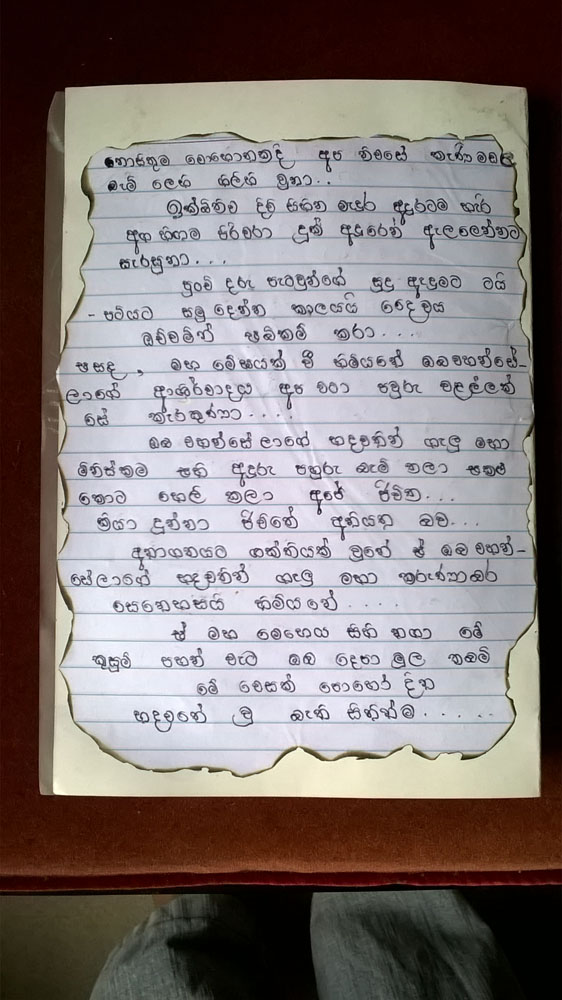 නොසිතුම මොහොතකදි අප නිවසේ කැණිමඬල
බැම් ලෙහි ගිලිහි වුනා..
ඉක්බිතිව දිවි සහිත මැදුර අඳුරටම හැරි
අග හිඟම පිරිවරා දුක් අඳුරෙන් ඇලලෙන්නට
සැරසුනා...
පුංචි දරු පැටවුන්ගේ සුදු ඇඳුමට ටයි
- පටියට සමු දෙන්න කාලයයි දෛවය
ඔච්චමින් සරදම් කරා....
එසඳ, මහ මේඝයක් වී හිමියනේ ඔබවහන්සේ-
ලාගේ ආශිර්වාදය අප වටා පවුරු වළල්ලක්
සේ කැරකුනා....
ඔබ වහන්සේලාගේ හදවතින් ගැලු මහා
මිනිස්කම සති අඳුරු පහුරු බැමි තලා සකස්
කොට හෙලි කලා අපේ ජීවිත...
කියා දුන්නා ජීවිතේ අනියත බව...
අනාගතයට ශක්තියක් වුනේ ඒ ඔබ වහන්-
සේලාගේ හදවතින් ගැලු මහා කරුණාබර
සෙනෙහසයි හිමියනේ....
ඒ මහ මෙහෙය සිහි නගා මේ
කුසුම් පහන් වැට ඔබ දෙපා මුල තබමි
මේ වෙසක් පොහෝ දින
හදවතේ වු බැති සිතින්ම......